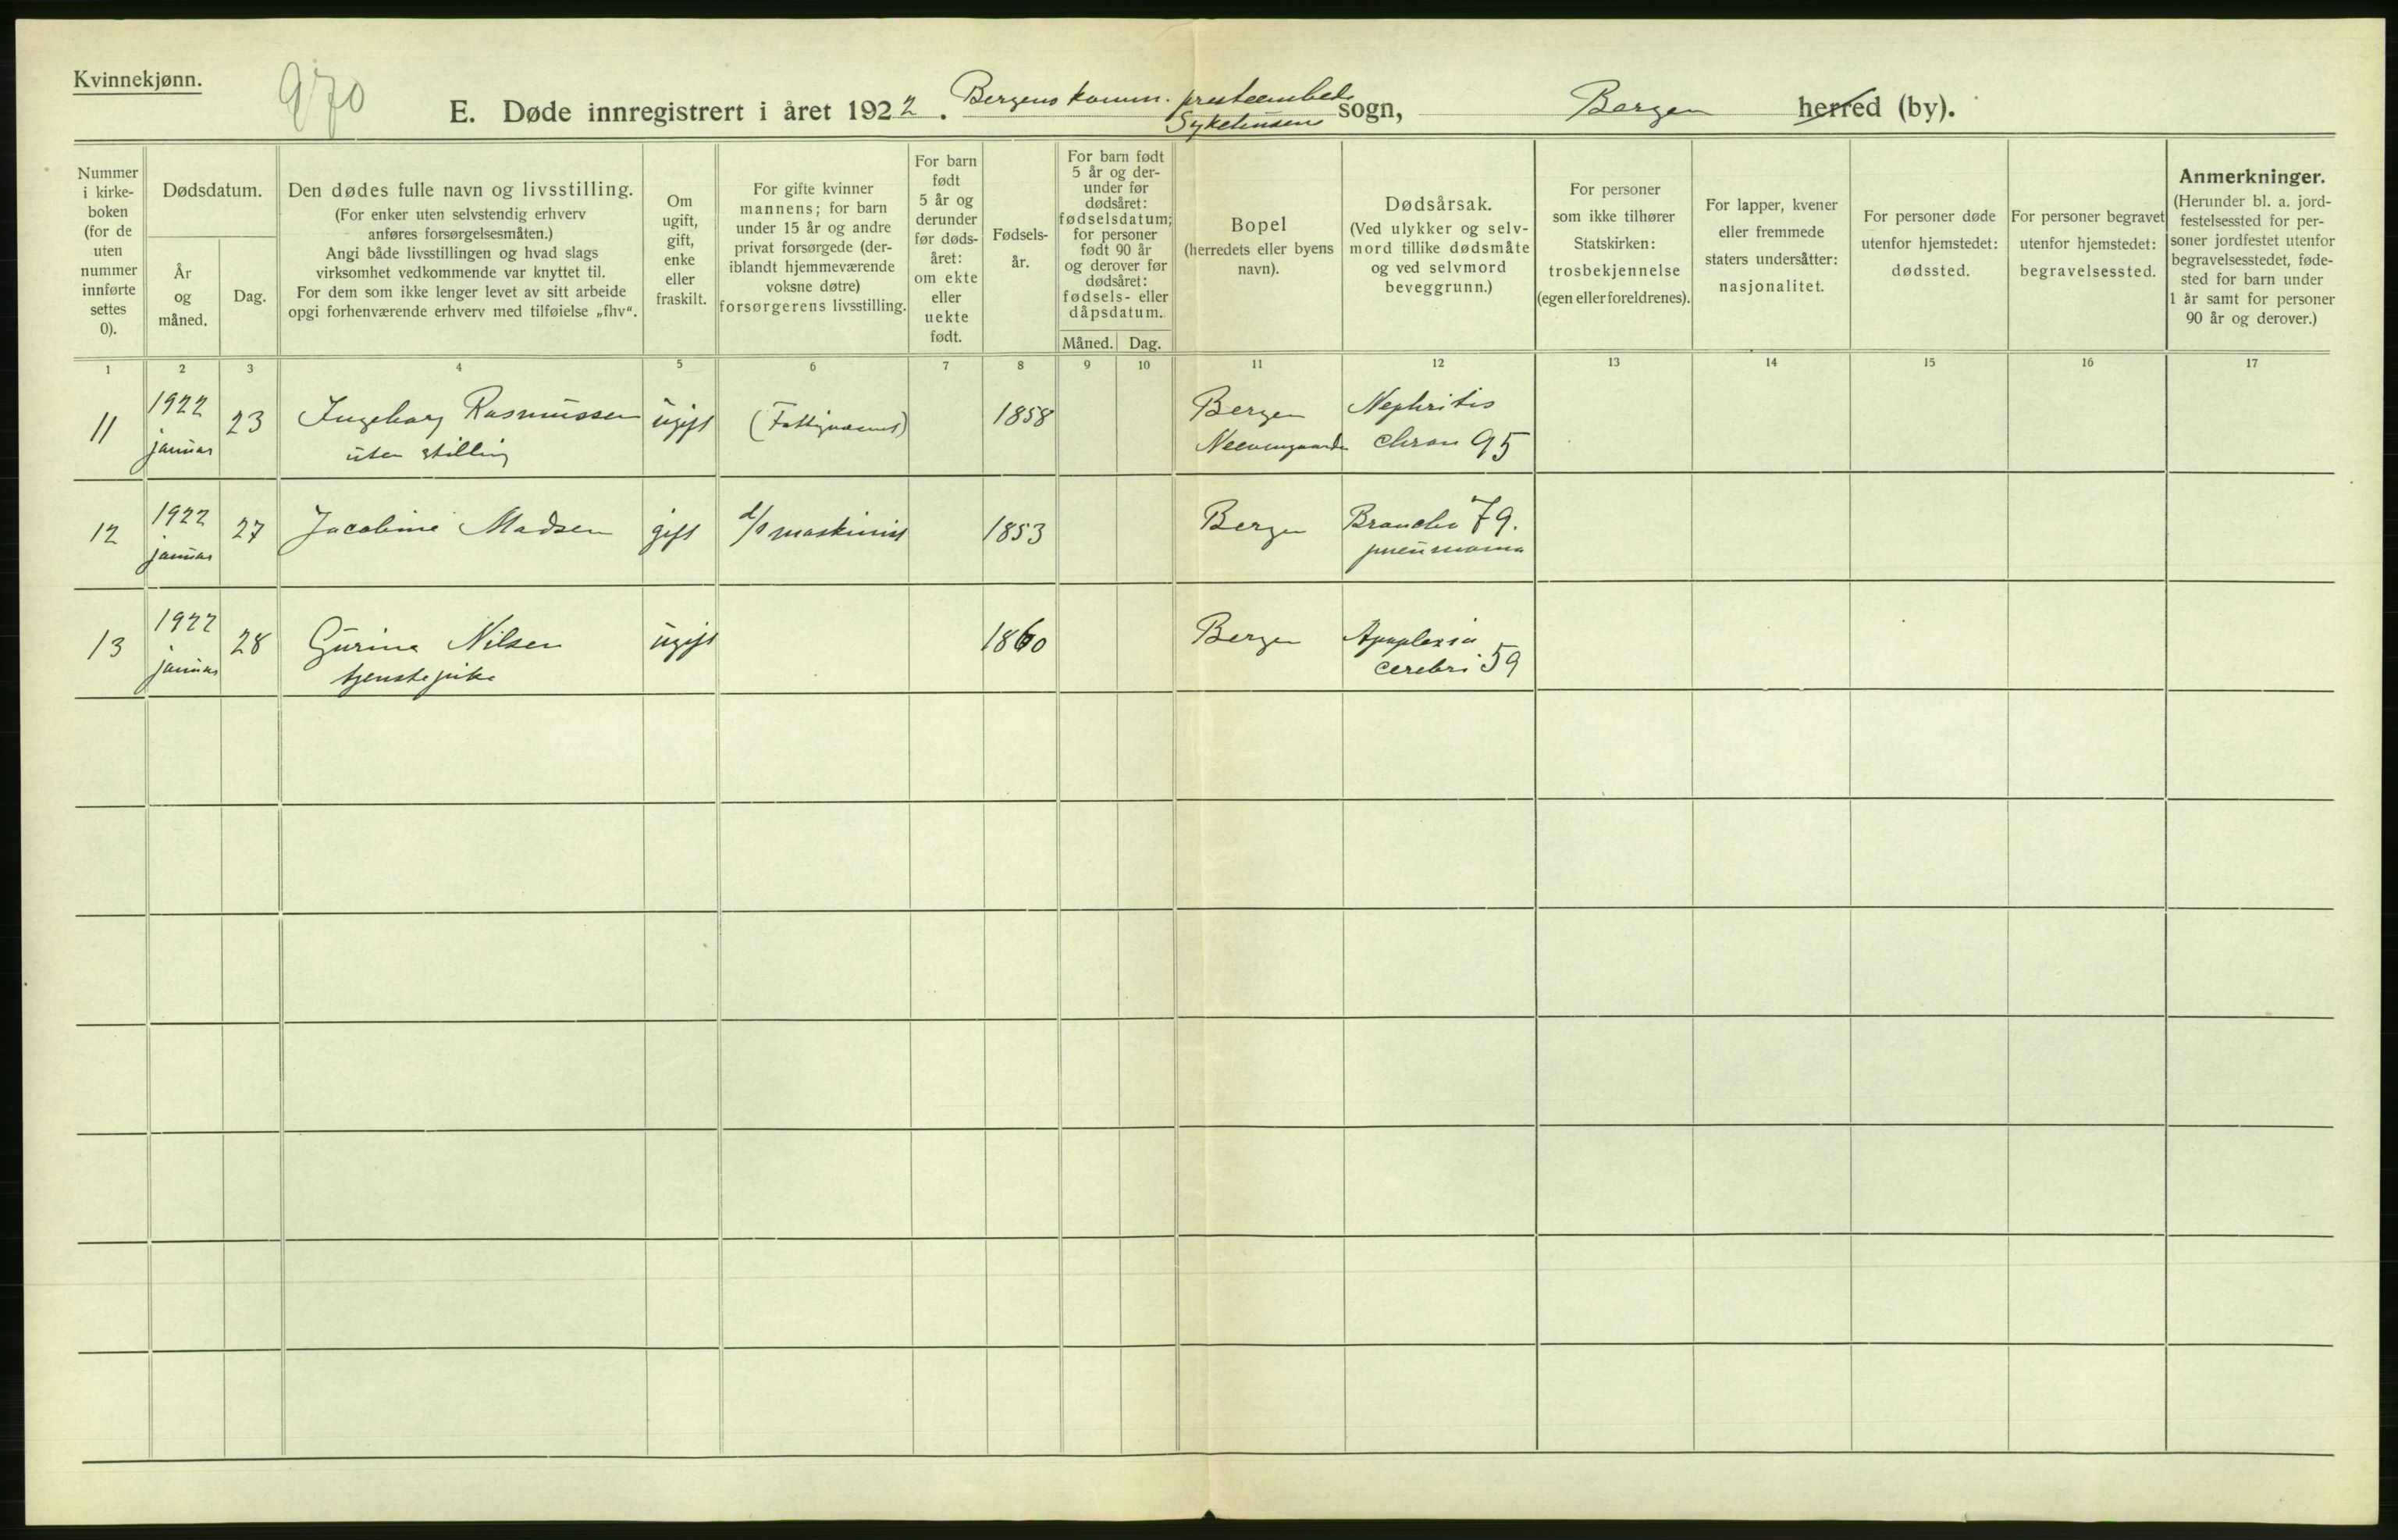 Kvinnekjønn.
970
E. Døde innregistrert i året 1922. Bergens komm. presteembede sogn, Bergen herred (by).
Sykehusene
Nummer
i kirke-
boken
(for de
uten
nummer
innførte
settes
0).
Dødsdatum.
År
og
måned.
Dag.
Den dødes fulle navn og livsstilling.
(For enker uten selvstendig erhverv
anføres forsørgelsesmåten.)
Angi både livsstillingen og hvad slags
virksomhet vedkommende var knyttet til.
For dem som ikke lenger levet av sitt arbeide
opgi forhenværende erhverv med tilføielse „fhv“.
Om
ugift,
gift,
enke
eller
fraskilt.
For gifte kvinner
mannens; for barn
under 15 år og andre
privat forsørgede (der-
iblandt hjemmeværende
voksne døtre)
forsørgerens livsstilling.
For barn
født
5 år og
derunder
før døds-
året:
om ekte
eller
uekte
født.
Fødsels-
år.
For barn født
5 år og der-
under før
dødsåret:
fødselsdatum;
for personer
født 90 år
og derover før
dødsåret:
fødsels- eller
dåpsdatum.
Måned. Dag.
Bopel
(herredets eller byens
navn).
Dødsårsak.
(Ved ulykker og selv-
mord tillike dødsmåte
og ved selvmord
beveggrunn.)
For personer
som ikke tilhører
Statskirken:
trosbekjennelse
(egen eller foreldrenes).
For lapper, kvener
eller fremmede
staters undersåtter:
nasjonalitet.
For personer døde
utenfor hjemstedet:
dødssted.
For personer begravet
utenfor hjemstedet:
begravelsessted.
Anmerkninger.
(Herunder bl. a. jord-
festelsessted for per-
soner jordfestet utenfor
begravelsesstedet, føde-
sted for barn under
1 år samt for personer
90 år og derover.)
1 2 3 4 5 6 7 8 9 10 11 12 13 14 15 16 17
11 1922 23 Ingeborg Rasmussen ugift 1858 Bergen Nephritis
januar uten stilling Neevengaarden chron 95
12 1922 27 Jacobine Madsen gift d/s maskinist 1853 Bergen Broncho 79.
januar pneumonia
13 1922 28 Gurine Nilsen ugift 1860 Bergen Apoplexia
januar tjenestepike cerebri 59